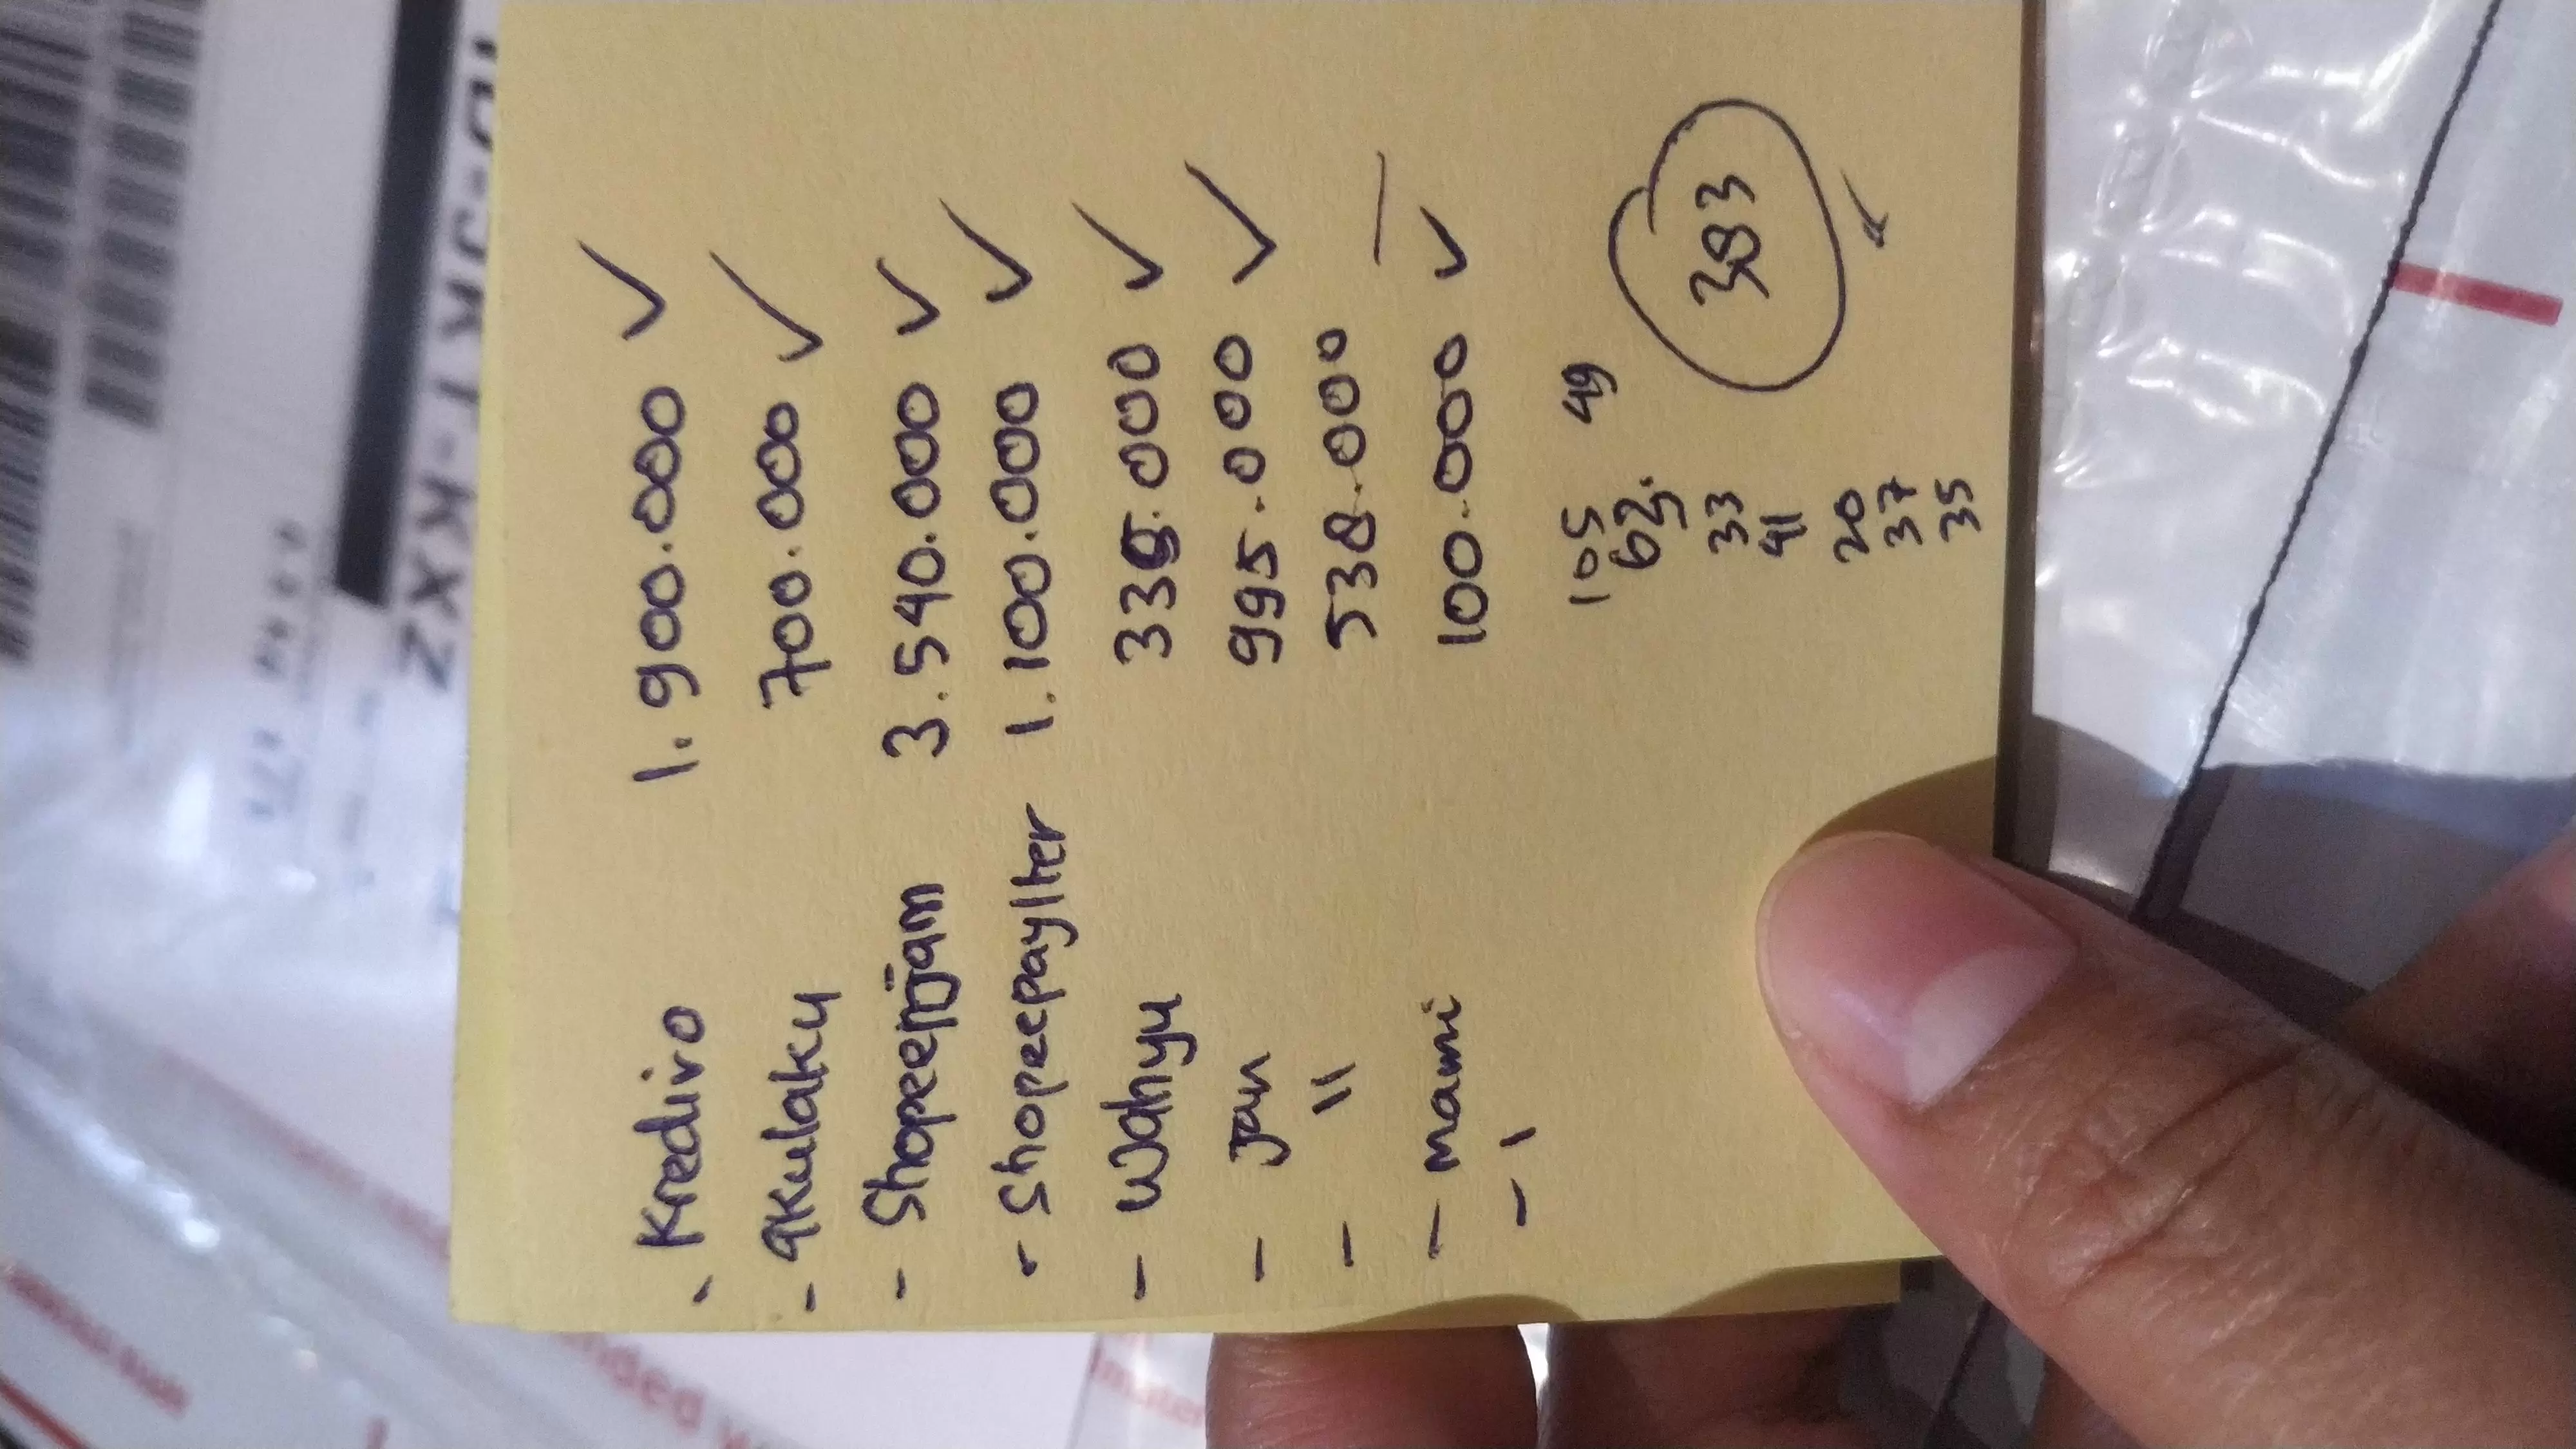 JKT-KXZ
- Kredivo 1.900.000 ✓
- akulaku 700.000 ✓
- Shopeepinjam 3.540.000 ✓
- Shopeepaylter 1.100.000 ✓
- Wahyu 335.000 ✓
- Jan 995.000 ✓
- " 538.000 —
- mami 100.000 ✓
- 1
105 49
62.
33
41
20
37
35
383